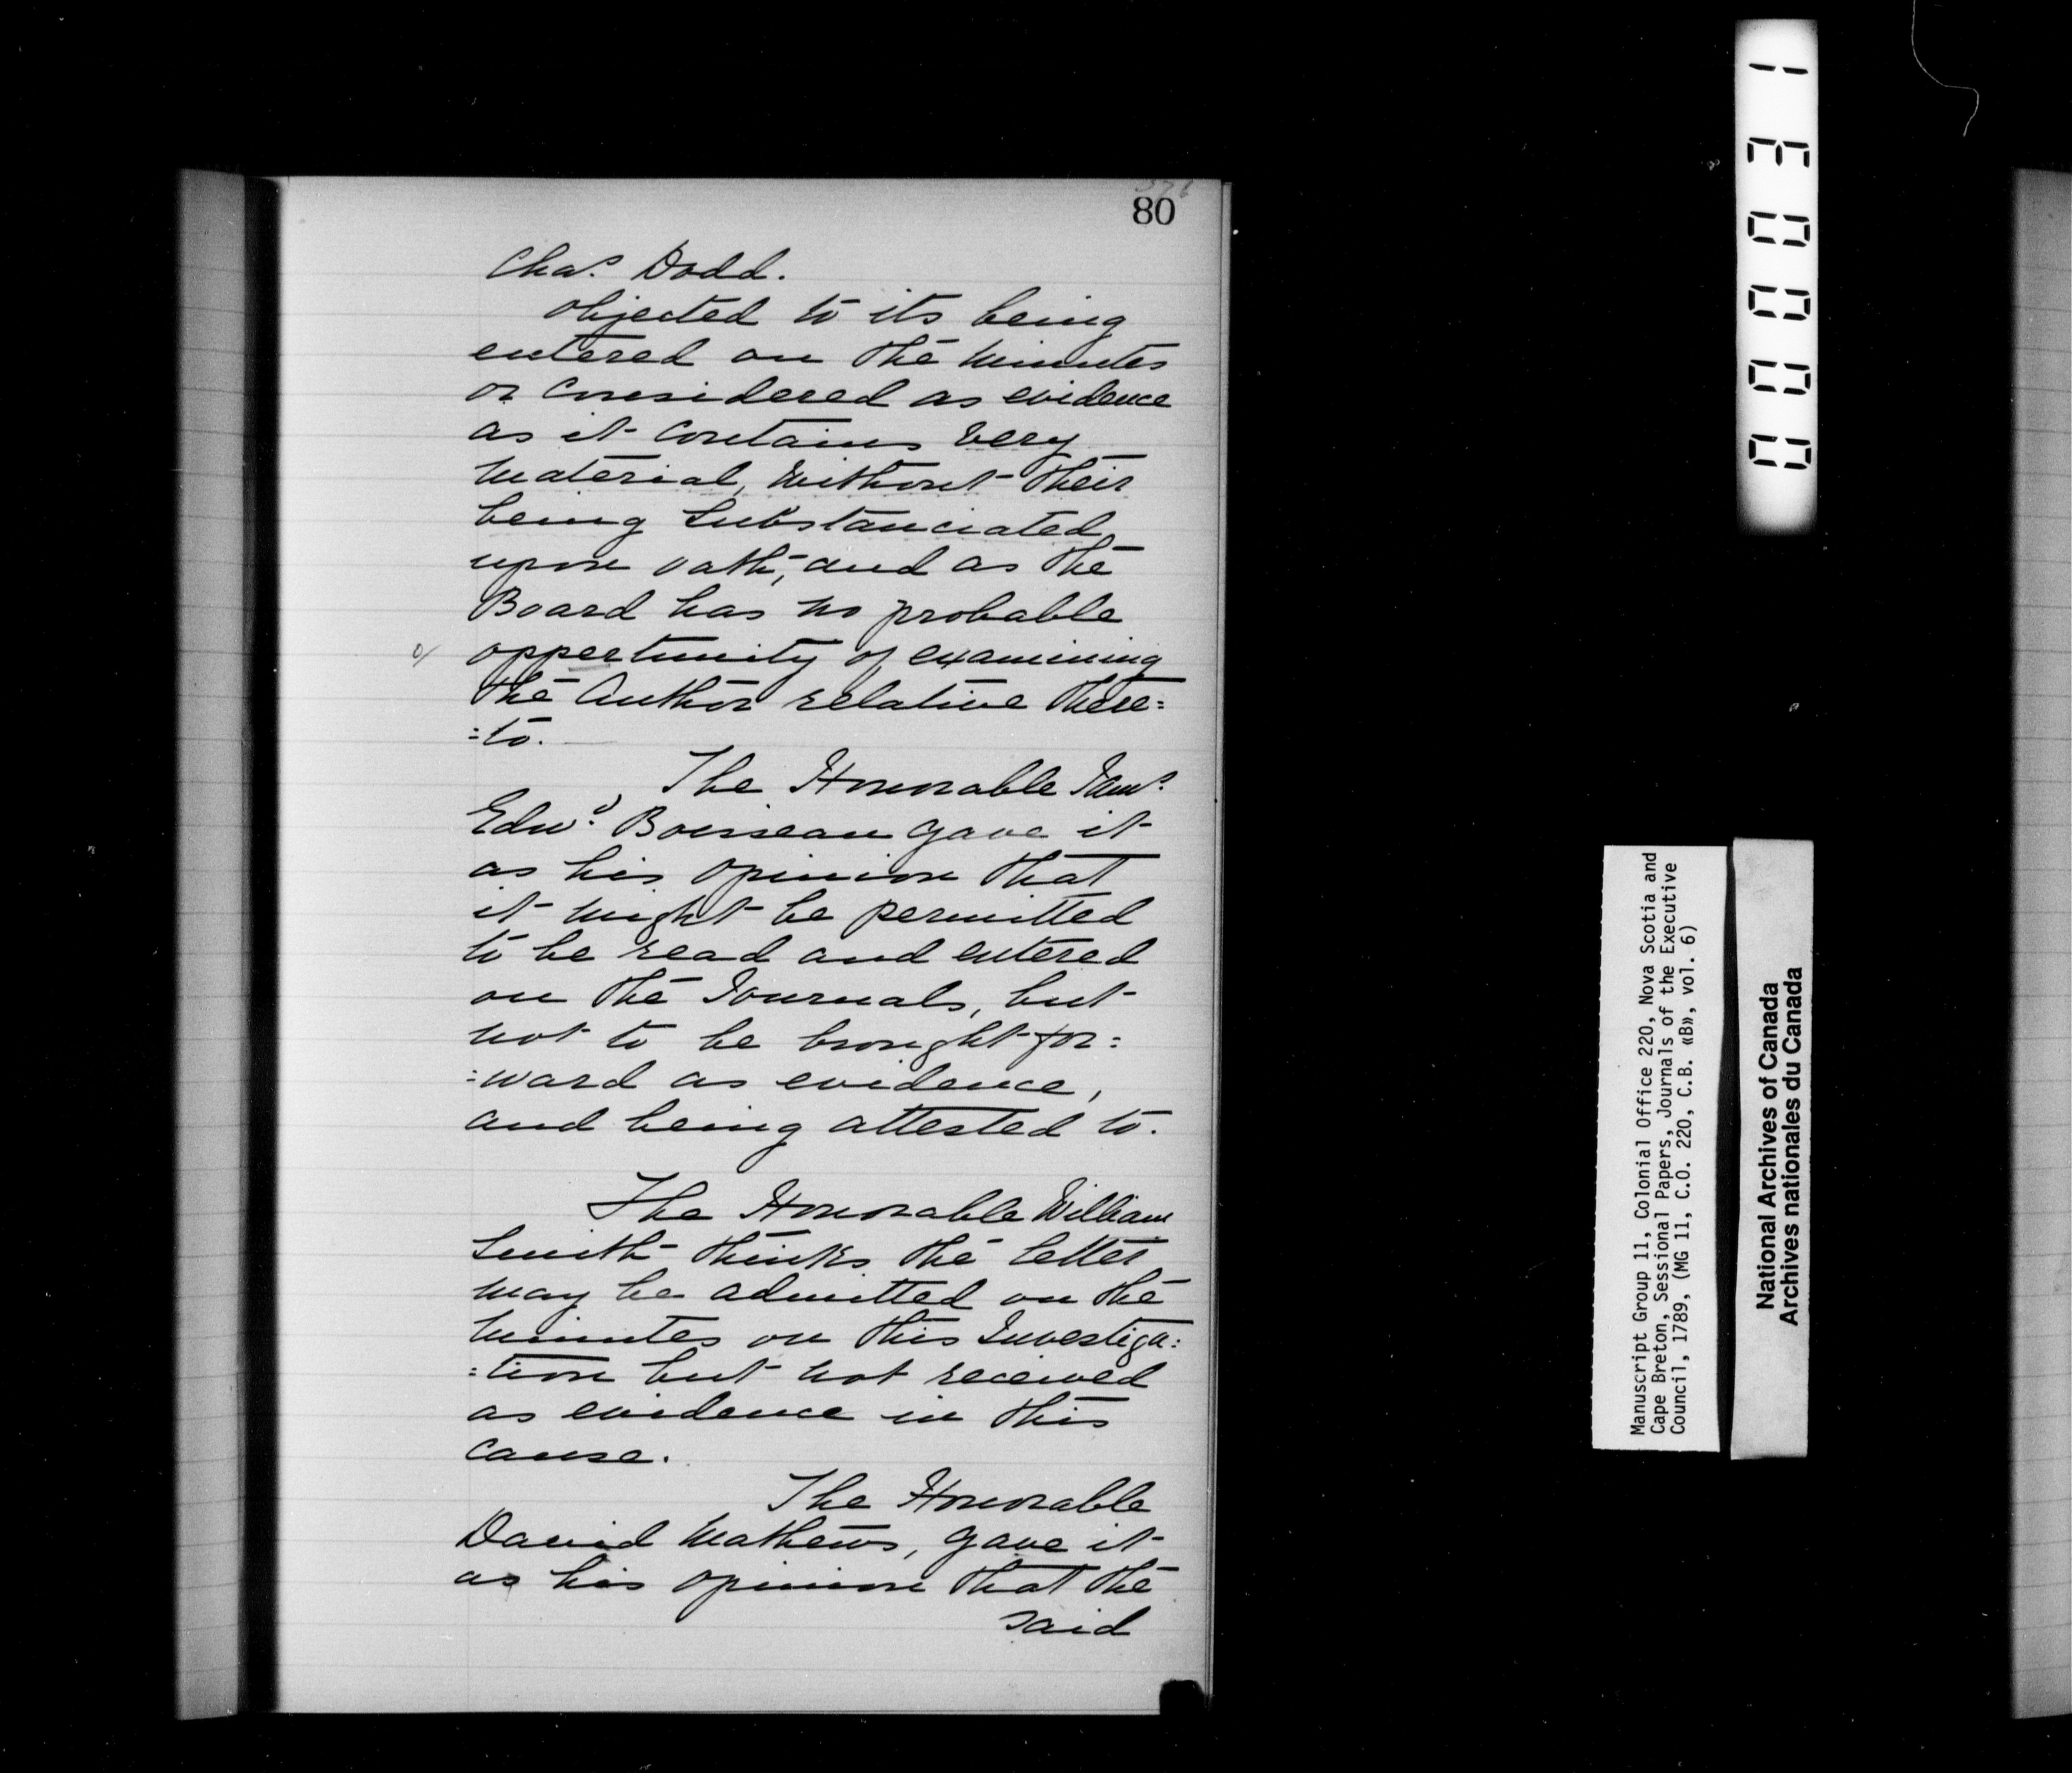 376
80
Chas. Dodd.
objected to its being
entered on the minutes
or considered as evidence
as it contains very
material, without their
being substanciated
upon oath, and as the
Board has no probable
o/ oppertunity of examining
the Author relative there=
=to.
The Honorable Jams.
Edwd. Boisseau gave it
as his opinion that
it might be permitted
to be read and entered
on the Journals, but
not to be brought for=
=ward as evidence,
and being attested to.
The Honorable William
Smith thinks the letter
may be admitted on the
minutes on this Investiga=
=tion but not received
as evidence in this
cause.
The Honorable
David Mathews, gave it
as his opinion that the
said
000031
Manuscript Group 11, Colonial Office 220, Nova Scotia and
Cape Breton, Sessional Papers, Journals of the Executive
Council, 1789, (MG 11, C.O. 220, C.B. «B», vol. 6)
National Archives of Canada
Archives nationales du Canada